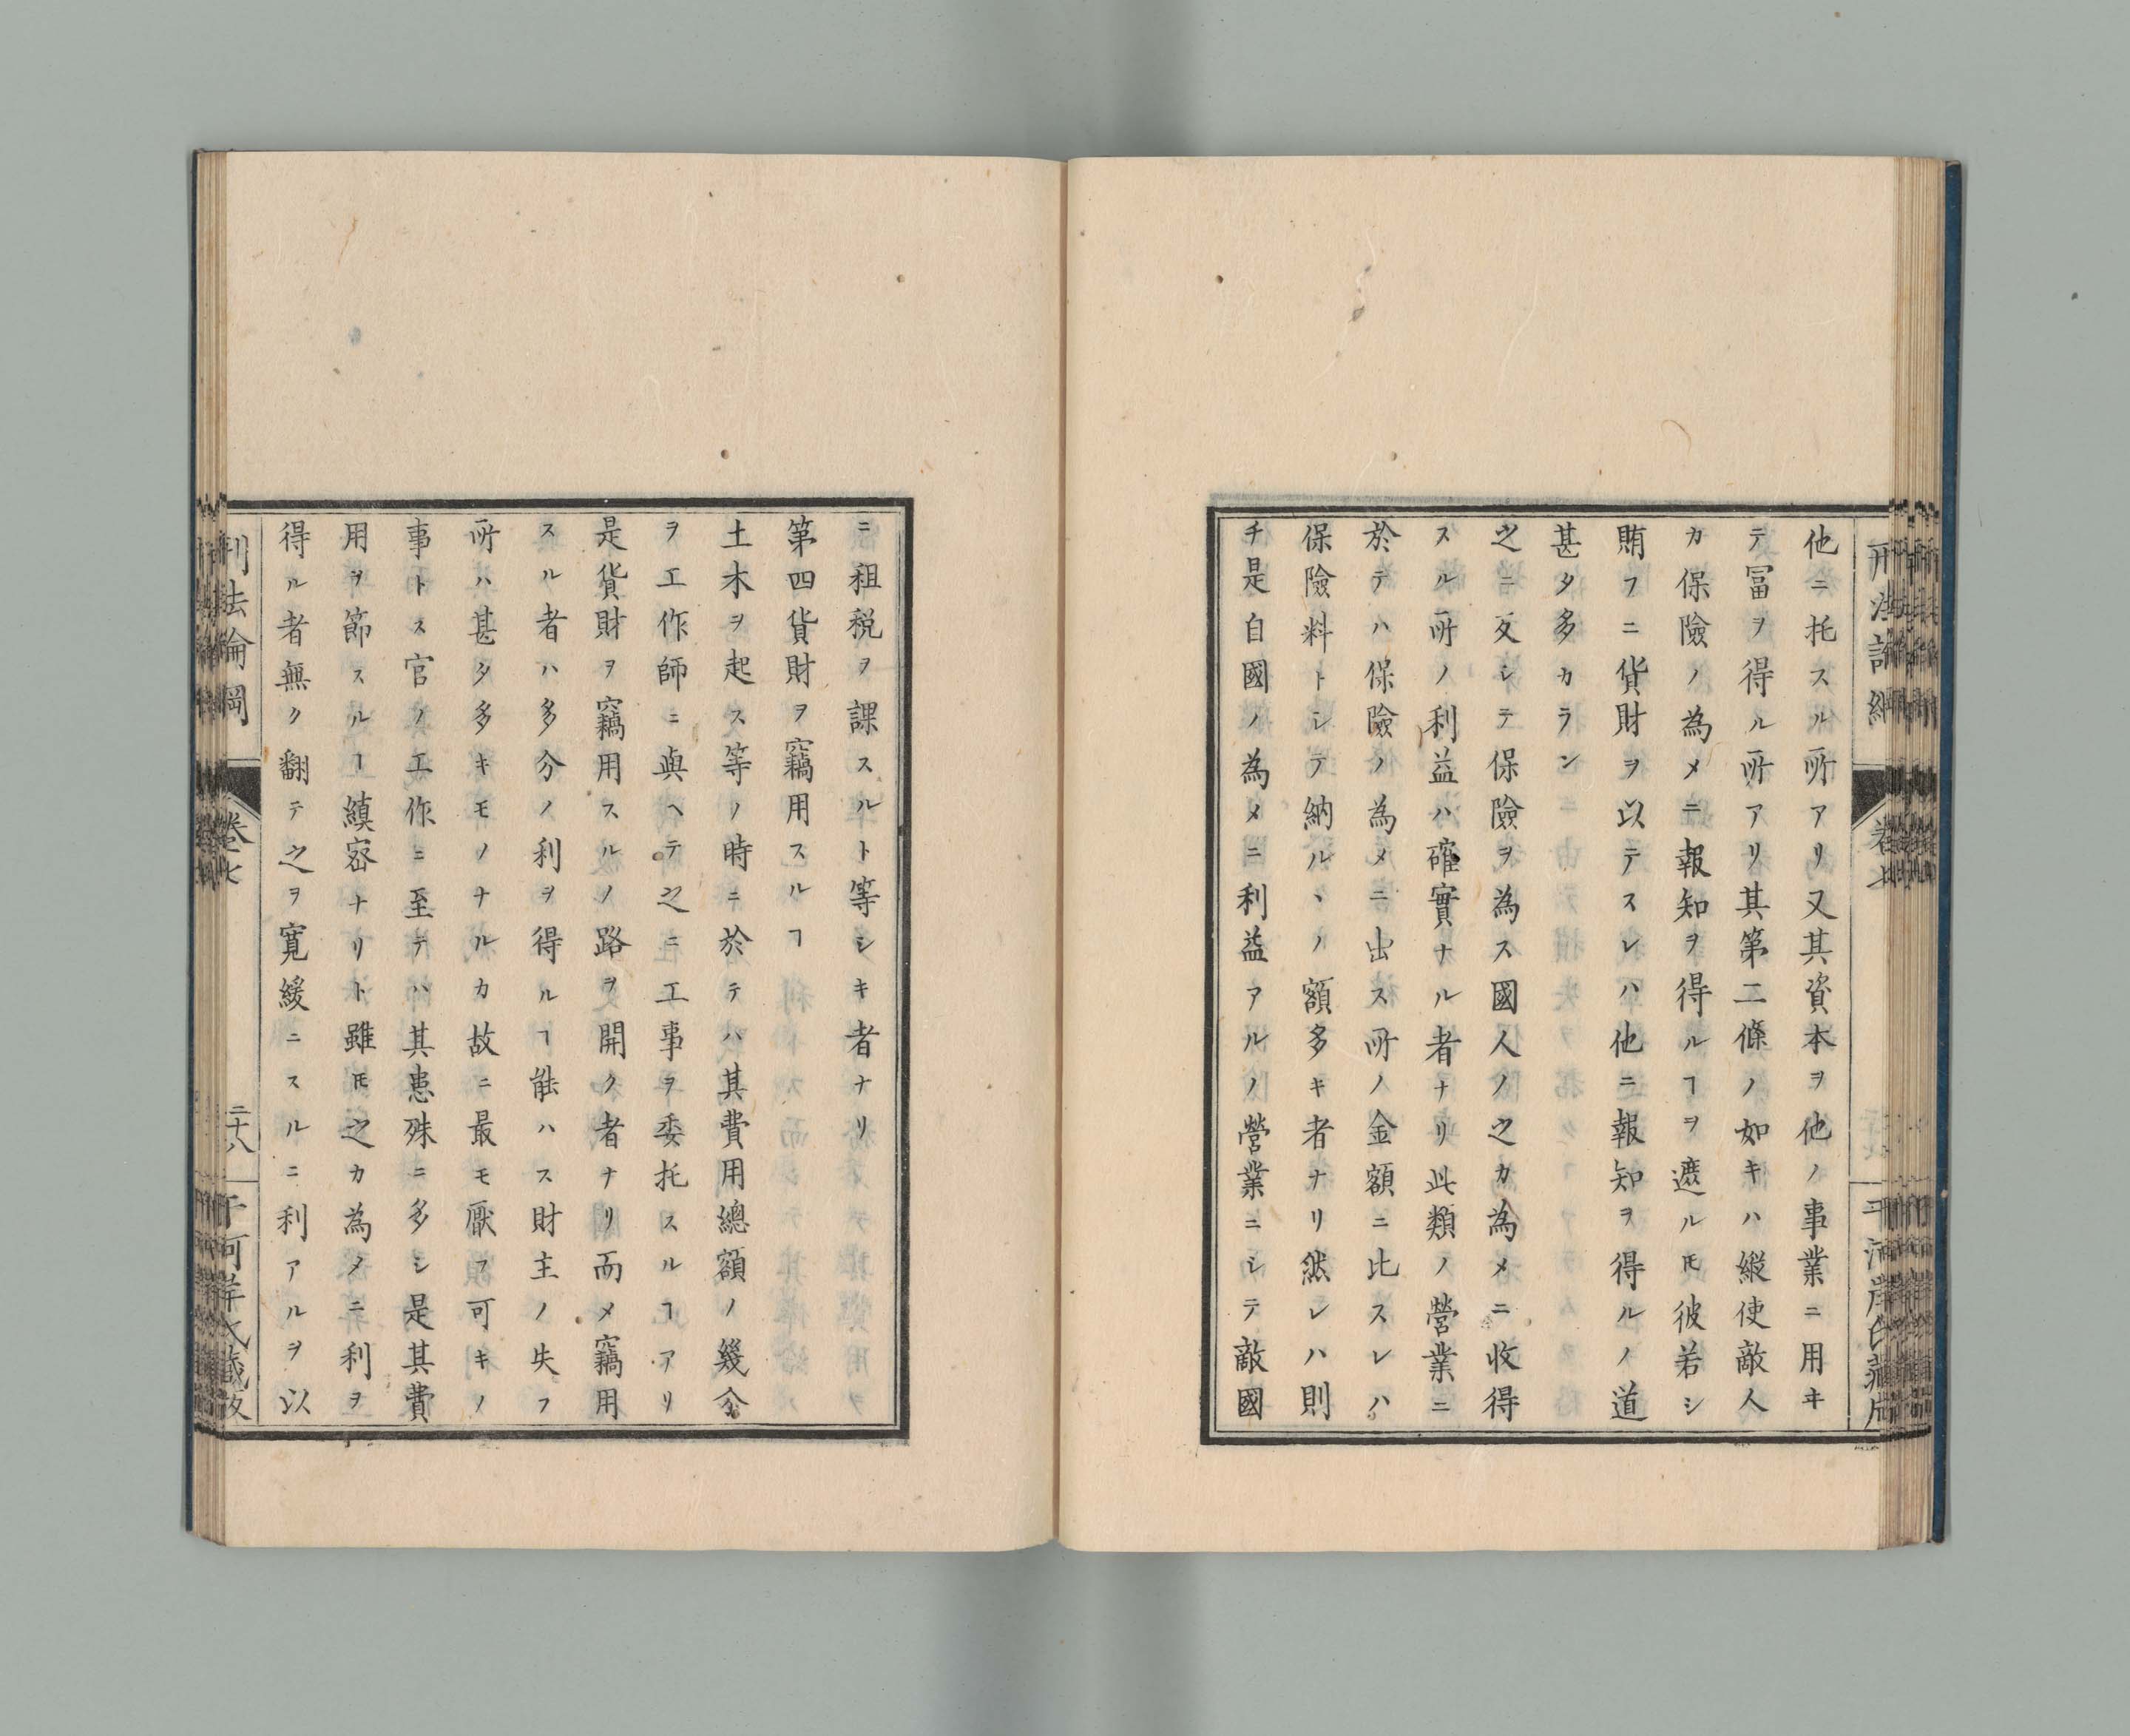 他ニ托スル所アリ又其資本ヲ他ノ事業ニ用ヰ
テ冨ヲ得ル所アリ其第二條ノ如キハ縱使敵人
カ保險ノ為メニ報知ヲ得ルヿヲ遮ルモ彼若シ
賄フニ貨財ヲ以テスレハ他ニ報知ヲ得ルノ道
甚タ多カラン
之ニ反シテ保險ヲ為ス國人ノ之カ為メニ收得
スル所ノ利益ハ確實ナル者ナリ此類ノ營業ニ
於テハ保險ノ為メニ出ス所ノ金額ニ比スレハ
保險料トシテ納ルヽノ額多キ者ナリ然レハ則
チ是自國ノ為メニ利益アルノ營業ニシテ敵國
ニ租税ヲ課スルト等シキ者ナリ
第四貨財ヲ竊用スルヿ
土木ヲ起ス等ノ時ニ於テハ其費用總額ノ幾分
ヲ工作師ニ與ヘテ之ニ工事ヲ委托スルヿアリ
是貨財ヲ竊用スルノ路ヲ開ク者ナリ而メ竊用
スル者ハ多分ノ利ヲ得ルヿ能ハス財主ノ失フ
所ハ甚タ多キモノナルカ故ニ最モ厭フ可キノ
事トス官ノ工作ニ至テハ其患殊ニ多シ是其費
用ヲ節スルヿ縝密ナリト雖𪜈之カ為メニ利ヲ
得ル者無ク翻テ之ヲ寛緩ニスルニ利アルヲ以
刑法論綱
卷七
二十八